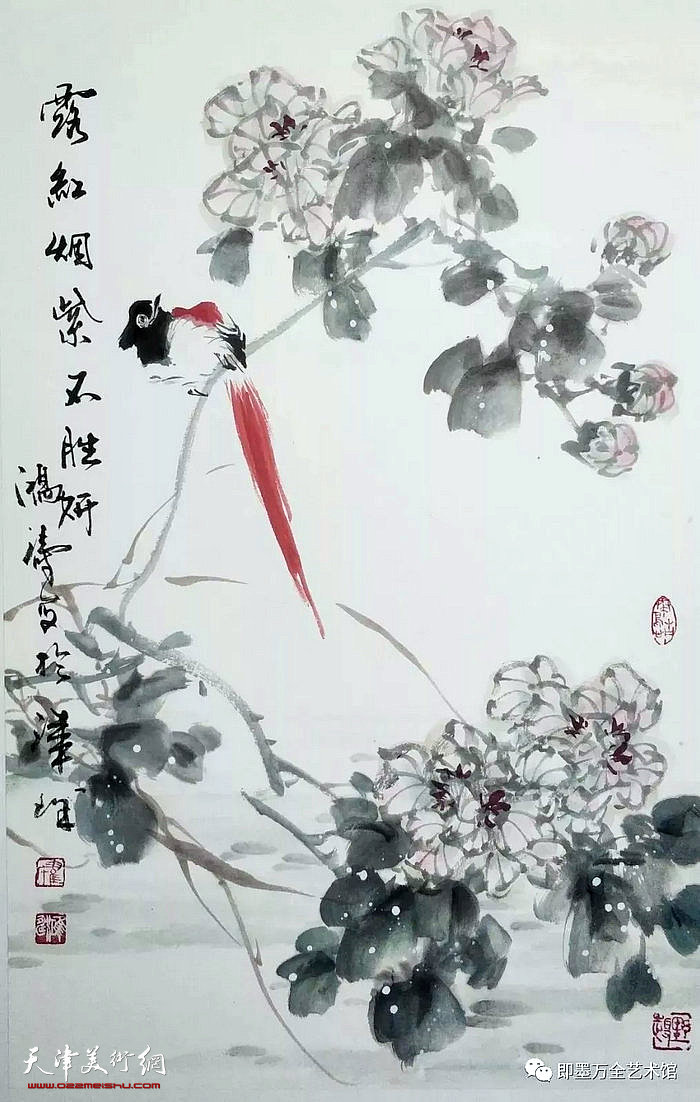 露紅烟紫不勝妍
鴻濤寫於津門
天津美術網
www.022meishu.com
即墨万全艺术馆